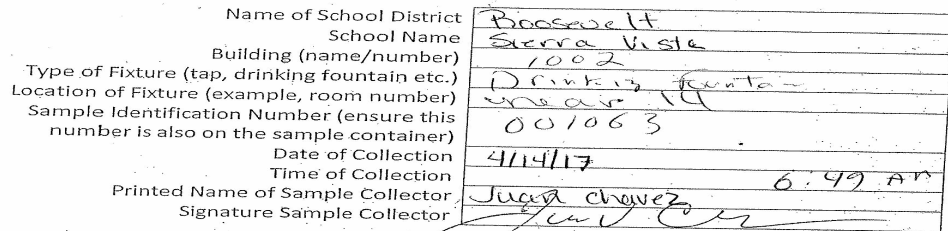 Name of School District Roosevelt
School Name Sierra Vista
Building (name/number) 1002
Type of Fixture (tap, drinking fountain etc.) Drinking fountain
Location of Fixture (example, room number) near 14
Sample Identification Number (ensure this
number is also on the sample container) 001063
Date of Collection 4/14/17
Time of Collection 6:49 AM
Printed Name of Sample Collector Juan Chavez
Signature Sample Collector